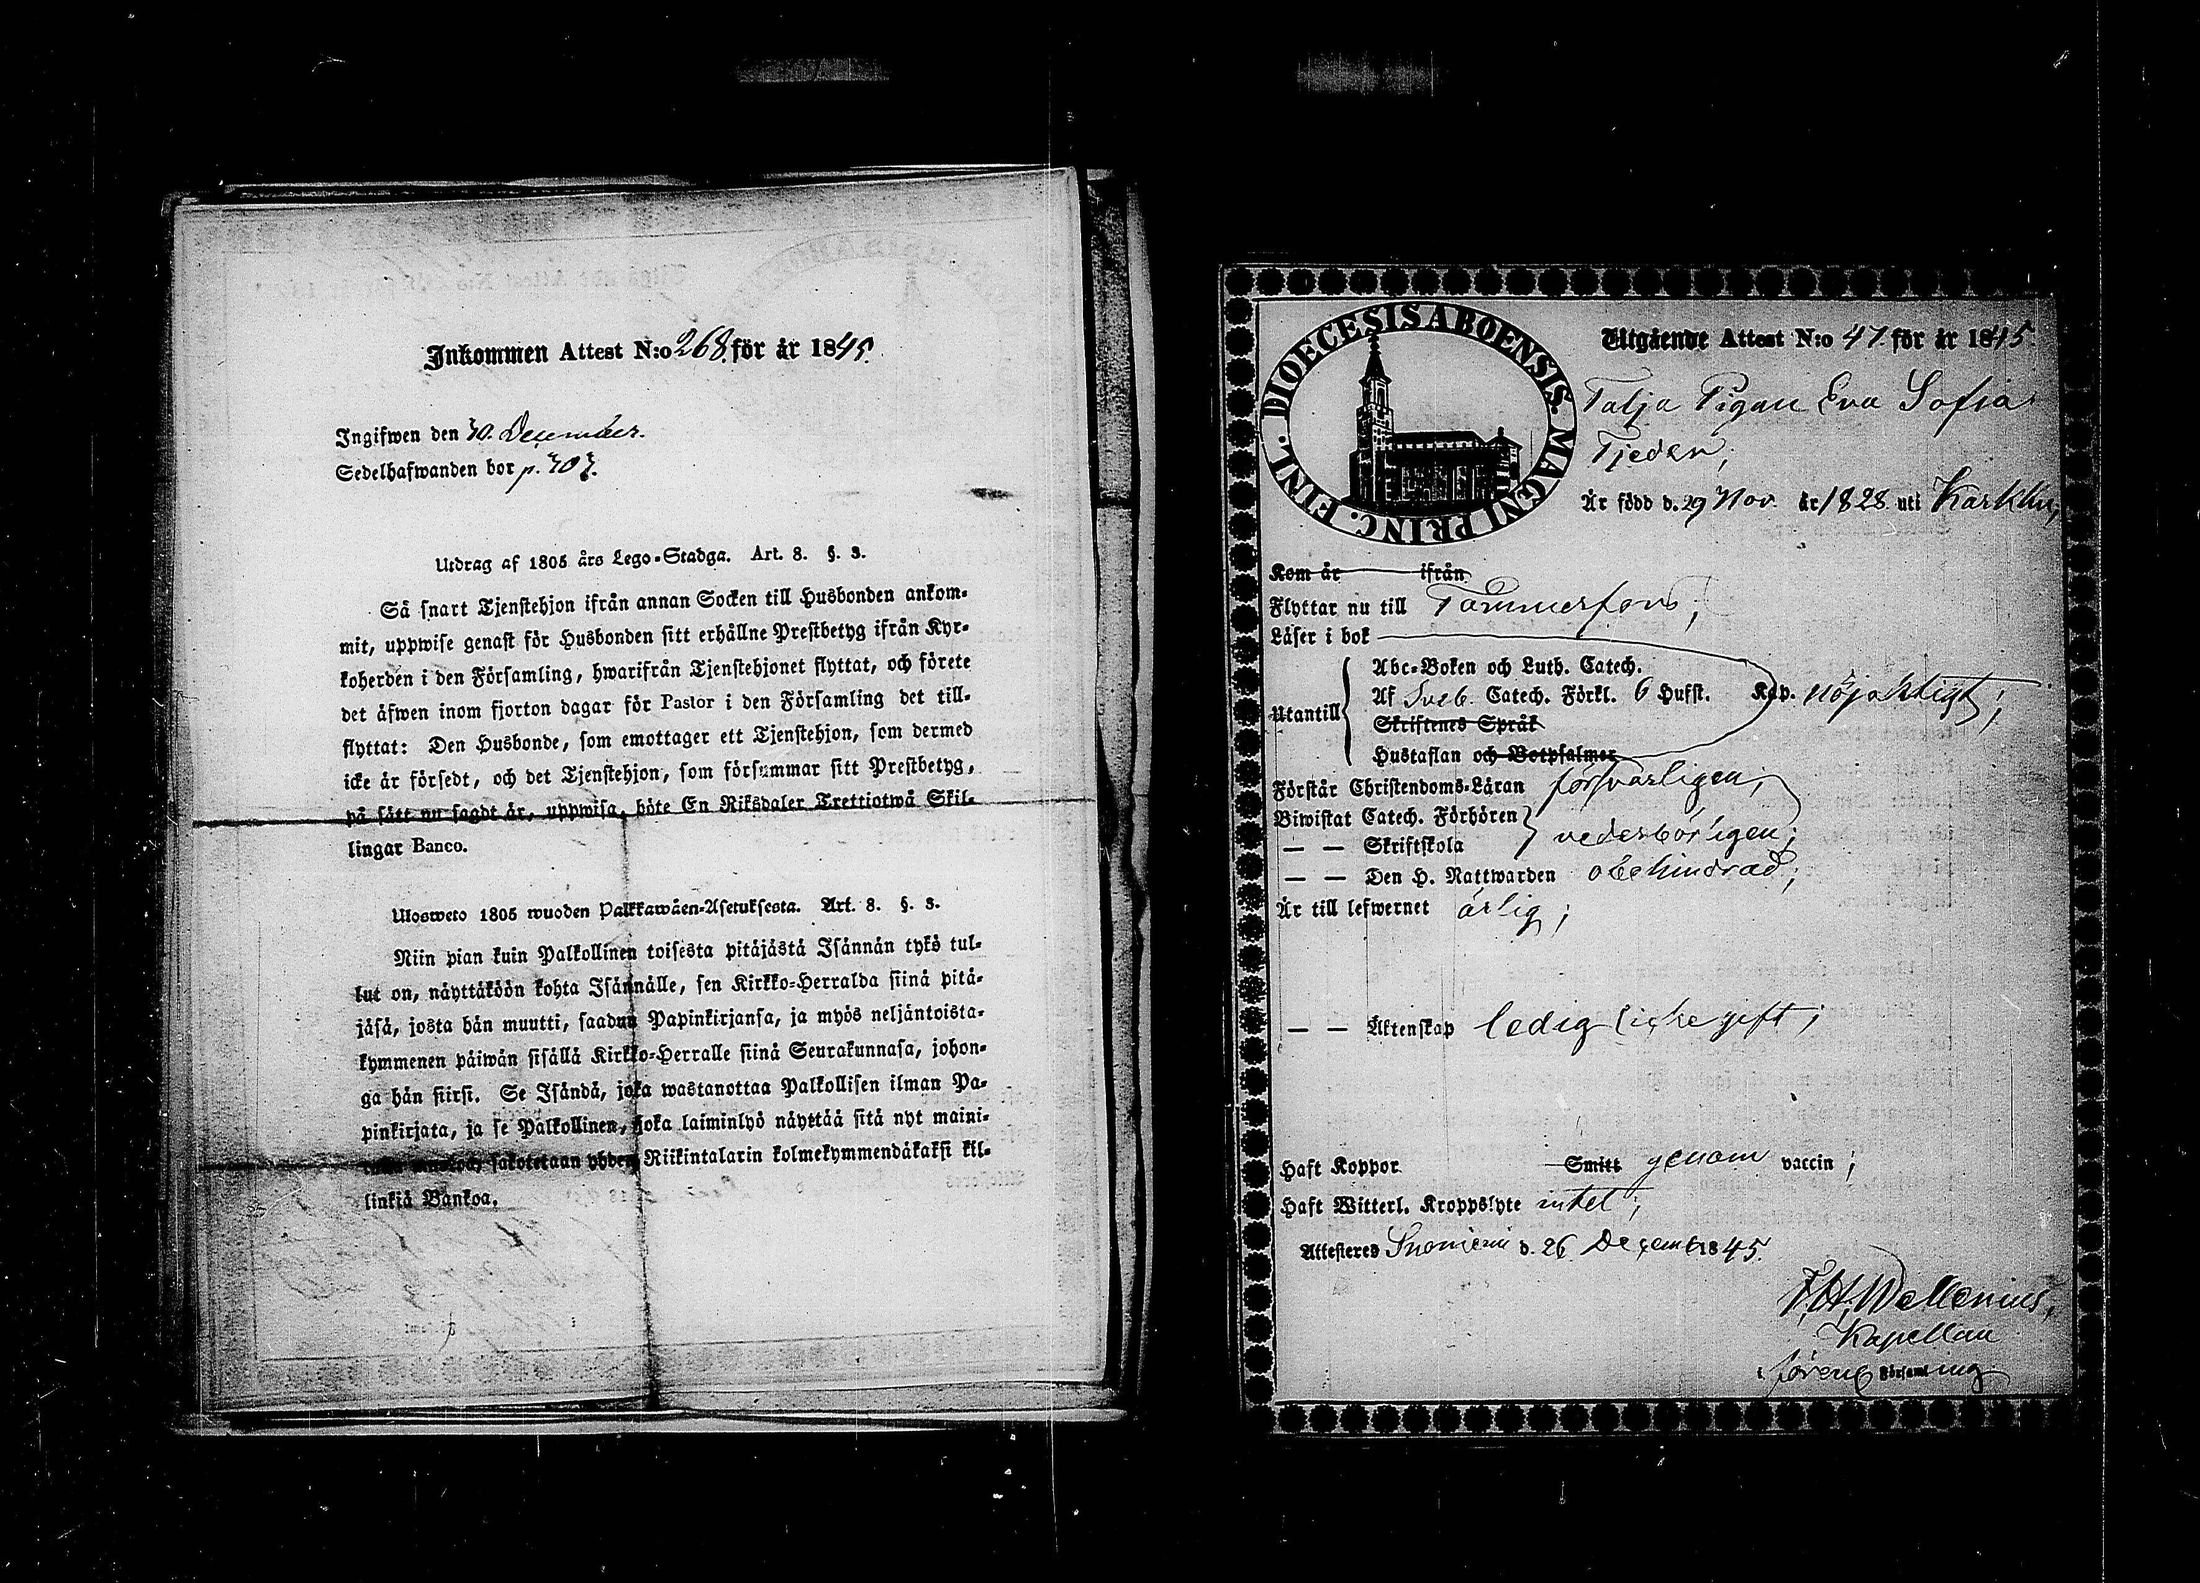 Inkommen Attest N:o 268. för år 1845.
Ingifwen den 30. December.
Sedelhafwanden bor p. 303.
Utdrag af 1805 års Lego-Stadga. Art. 8. §. 3.
Så snart Tjenstehjon ifrån annan Socken till Husbonden ankom-
mit, uppwise genast för Husbonden sitt erhållne Prestbetyg ifrån Kyr-
koherden i den Församling, hwarifrån Tjenstehjonet flyttat, och förete
det äfwen inom fjorton dagar för Pastor i den Församling det till-
flyttat: Den Husbonde, som emottager ett Tjenstehjon, som dermed
icke är försedt, och det Tjenstehjon, som försummar sitt Prestbetyg,
på sätt nu sagdt är, uppwisa, böte En Riksdaler Trettiotwå Skil-
lingar Banco.
Ulosweto 1805 wuoden Palkkawäen-Asetuksesta. Art. 8. §. 3.
Niin pian kuin Palkollinen toisesta pitäjästä Isännän tykö tul-
lut on, näyttäköön kohta Isännälle, sen Kirkko-Herralda siinä pitä-
jäsä, josta hän muutti, saadun Papinkirjansa, ja myös neljäntoista-
kymmenen päiwän sisällä Kirkko-Herralle siinä Seurakunnasa, johon-
ga hän siirsi. Se Isändä, joka wastanottaa Palkollisen ilman Pa-
pinkirjata, ja se Palkollinen, joka laiminlyö näyttää sitä nyt maini-
sakotetaan yhden Riikintalarin kolmekymmendäkaksi kil-
linkiä Bankoa.
DIOECESIS ABOENSIS. MAGNI PRINC. FINL.
Utgående Attest N:o 47. för år 1845.
Talja Pigan Eva Sofia
Tjeder,
Är född d. 29 Nov. år 1828. uti Karkku,
Kom år ifrån
Flyttar nu till Tammerfors;
Läser i bok
Utantill
Abc-Boken och Luth. Catech.
Af Sveb. Catech. Förkl. 6 Hufst. Kap. nöjaktigt;
Skriftenes Språk
Hustaflan och Botpsalmer
Förstår Christendoms-Läran försvarligen;
Biwistat Catech. Förhören
— — Skriftskola vederbörligen;
— — Den H. Nattwarden obehindrad;
Är till lefwernet ärlig;
— — Äktenskap ledig ( icke gift;
Haft Koppor Smitt genom vaccin;
Haft Witterl. Kroppslyte intet;
Attesteres Suoniemi d. 26 Decemb 1845.
F. H. Wallenius,
Kapellan
i förene Församling